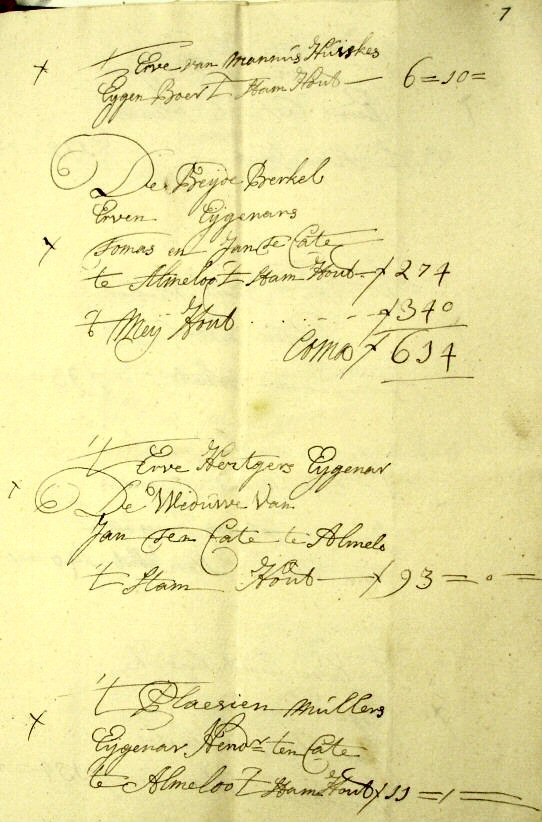 7
x 't Erve van Mannus Huiskes
Eygen Boer 't Ham Hout — 6=10=
De Beyde Berkel
Erven Eijgenars
x Tomas en Jan te Cate
te Almeloo 't Ham Hout - f 274
't Meij Hout . . . . - - - f 340
Coma f 614
't Erve Hertgers Eijgenar
x De Weduwe Van
Jan ten Cate te Almelo
't Ham Hout — f 93 = 0 =
't Plaesien Mullers
x Eijgenar Hendr ten Cate
te Almeloo 't Ham Hout f 11 = 1 =